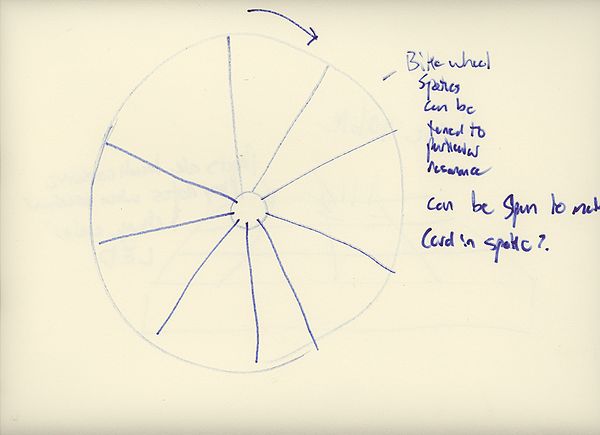 Bike wheel
Spokes
can be
tuned to
particular
resonance
can be Spun to mak
Card in spoke?